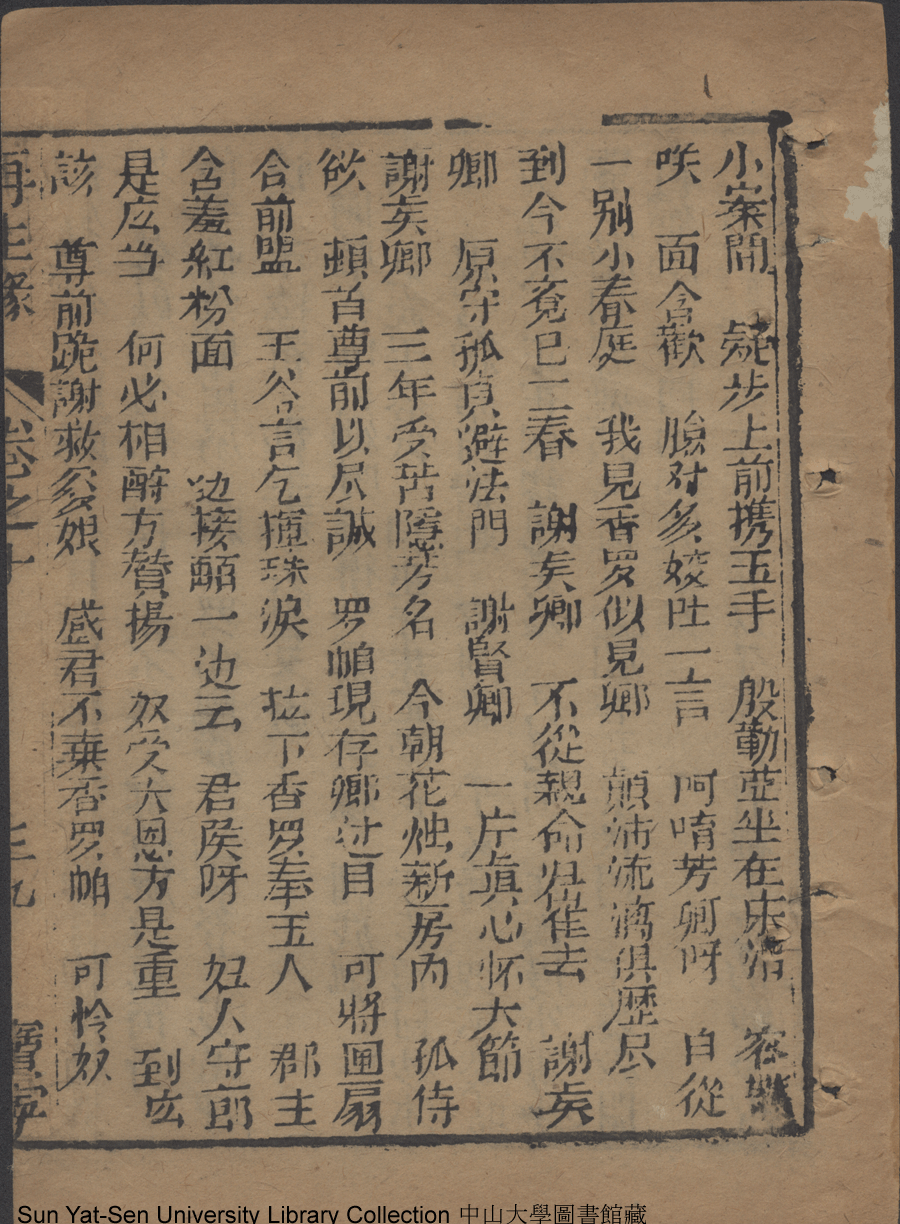 小案間　步上前携玉手　殷勤並坐在床沿　容
咲　面含歡　臉对多姣吐一言　呵唷芳卿呀　自從
一別小春庭　我見香罗似見卿　顛沛流漓俱歷尽
到今不竟已二春　謝矣卿　不從親命归崔去　謝矣
卿　原守孤貞避法門　謝賢卿　一片真心怀大節
謝矣卿　三年受苦隱芳名　今朝花烛新房內　孤侍
欲　頓首尊前以尽誠　罗帕現存卿过目　可將团扇
合前盟　王爷言乞揮珠淚　拉下香罗奉玉人　郡主
含羞紅粉面　边接帕一边云　君侯呀　奴人守節
是应当　何必相酧方贊揚　奴受大恩方是重　到应
該　尊前跪謝救多娘　感君不棄香罗帕　可怜奴
再生緣　卷之十　三九　寳寧
Sun Yat-Sen University Library Collection 中山大學圖書館藏